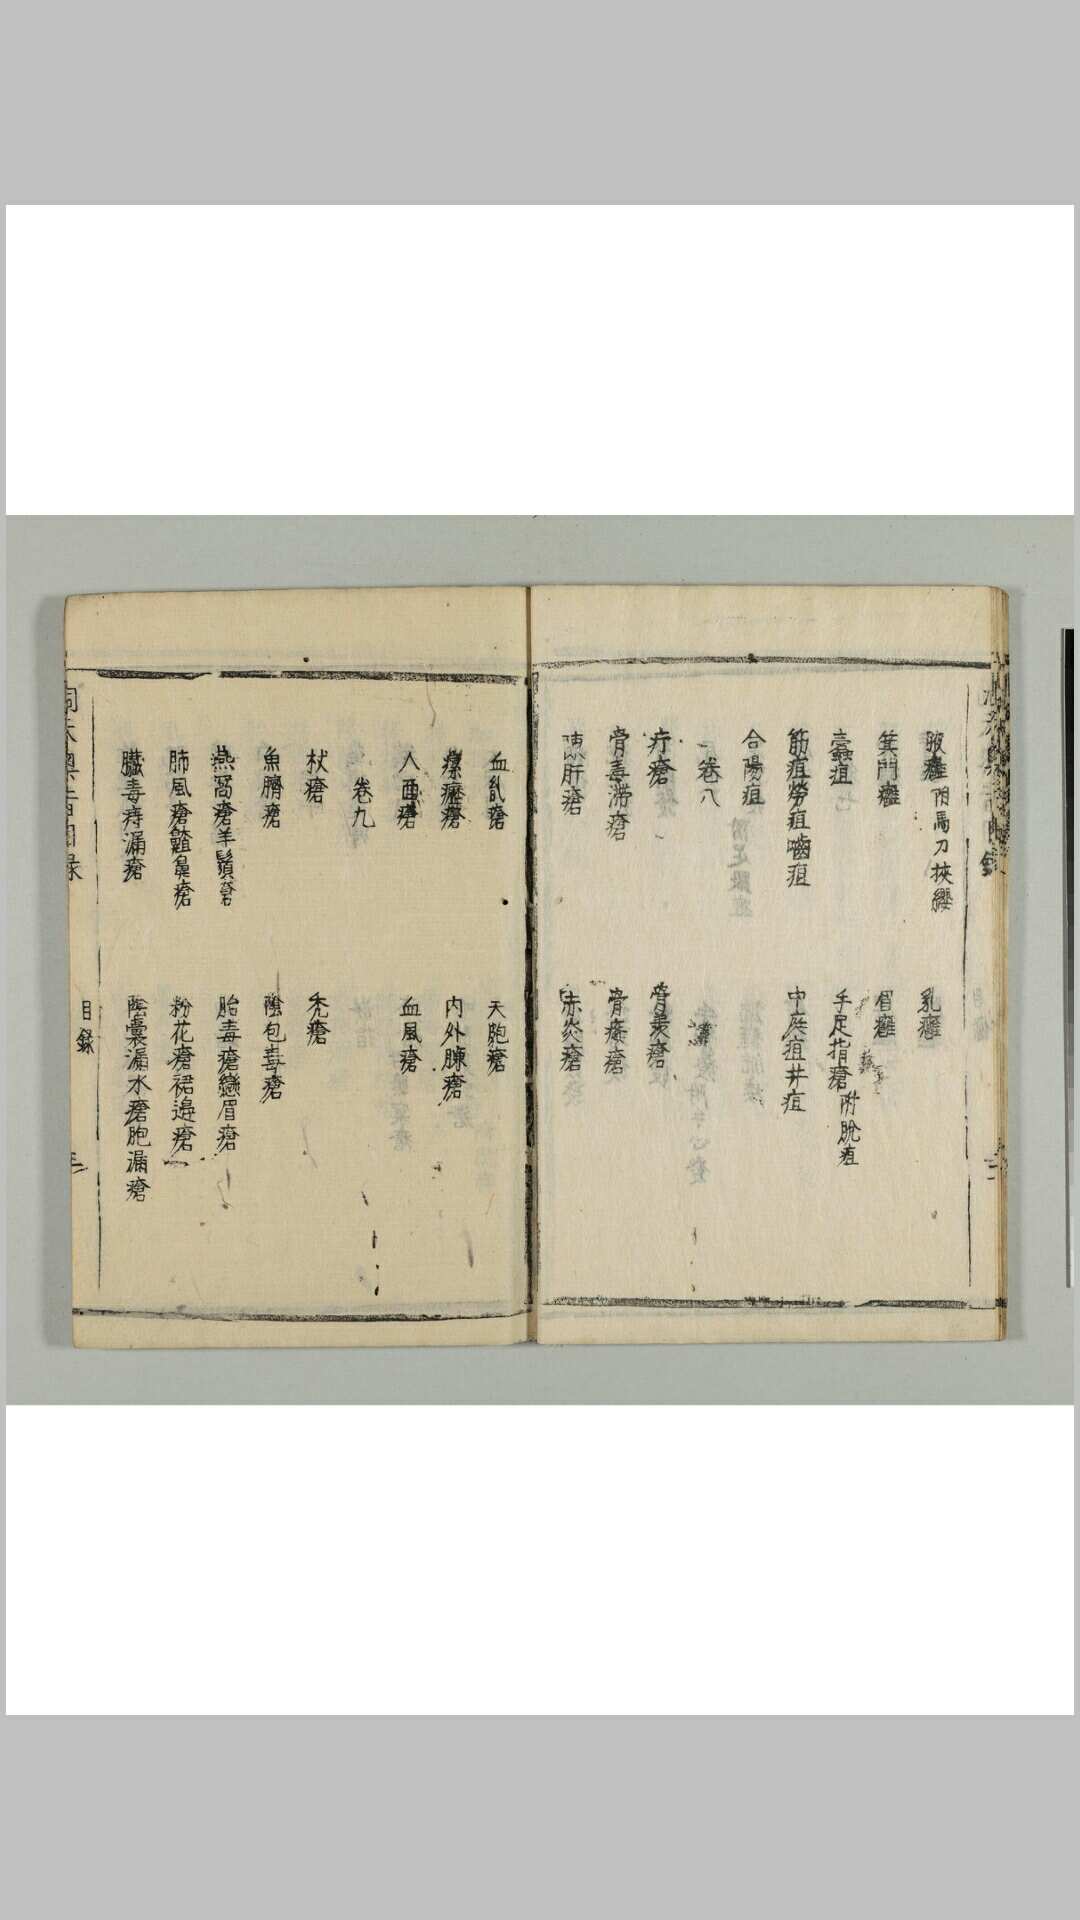 腋癰附馬刀挾纓
乳癰
箕門癰
眉癰
蠹疽
手足指瘡附脫疽
筋疽勞疽嚙疽
中庭疽井疽
合陽疽
卷八
疔瘡
骨羨瘡
骨毒滯瘡
骨痿瘡
肝瘡
赤炎瘡
血乱瘡
天胞瘡
瘰癧瘡
內外臁瘡
人面瘡
血風瘡
卷九
杖瘡
禿瘡
魚臍瘡
陰包毒瘡
燕窩瘡羊鬚瘡
胎毒瘡戀眉瘡
肺風瘡齇鼻瘡
粉花瘡裙邊瘡
臟毒痔漏瘡
陰囊漏水瘡胞漏瘡
目錄